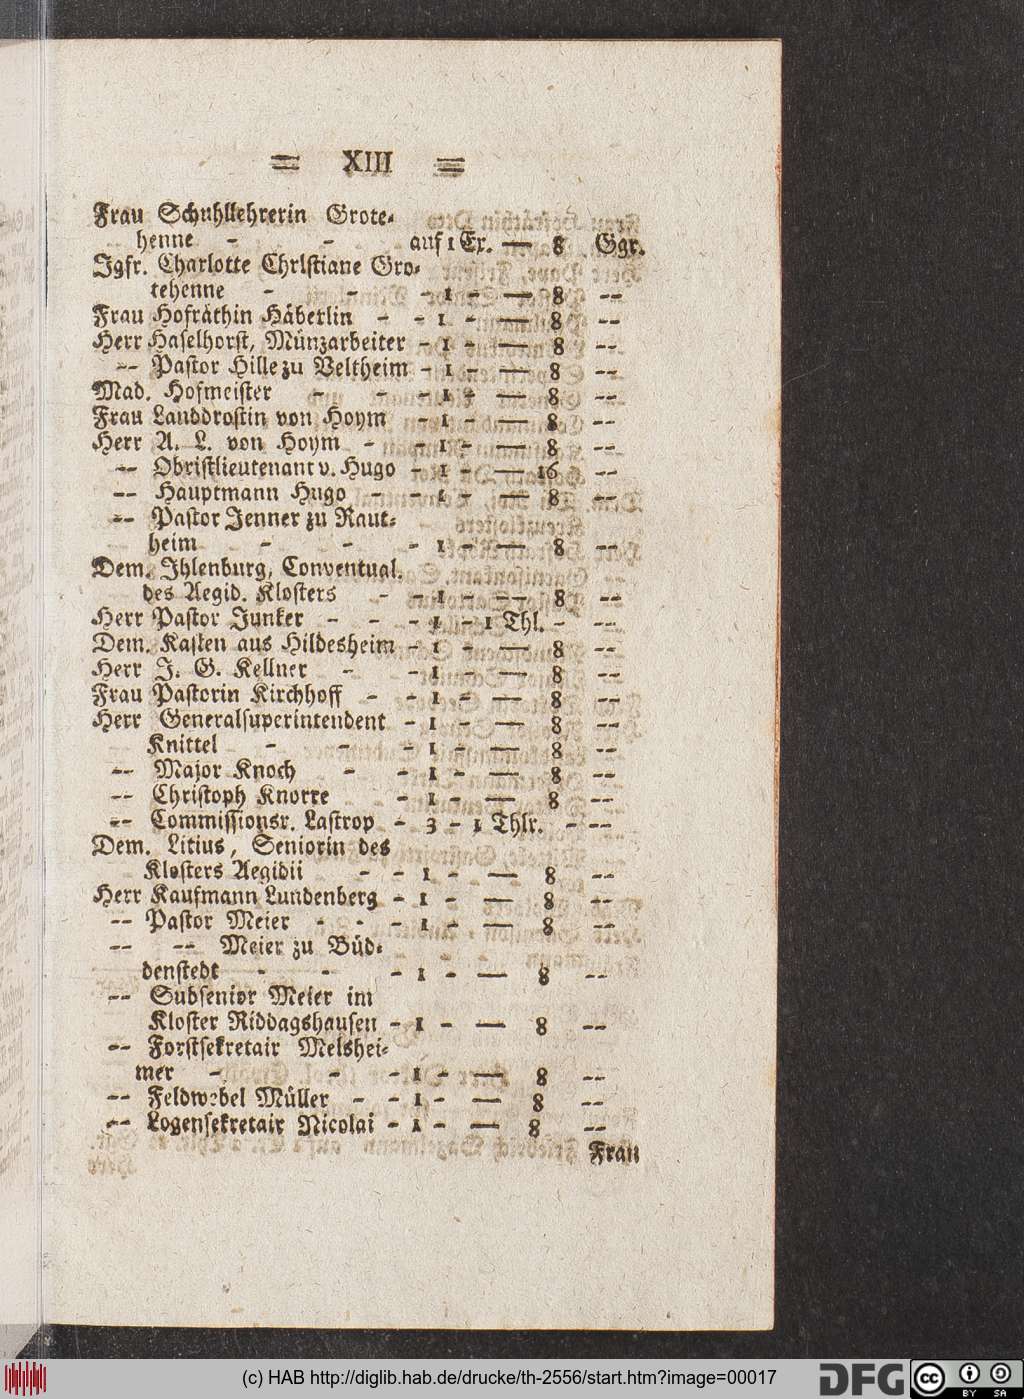 = XIII =
Frau Schuhllehrerin Grote-
henne - - auf 1 Ex. — 8 Ggr.
Jgfr. Charlotte Chrlstiane Gro-
tehenne - - - 1 - — 8 --
Frau Hofräthin Häberlin - - 1 - — 8 --
Herr Haselhorst, Münzarbeiter - 1 - — 8 --
-- Pastor Hille zu Veltheim - 1 - — 8 --
Mad. Hofmeister - - - 1 - — 8 --
Frau Landdrostin von Hoym - 1 - — 8 --
Herr A. L. von Hoym - - 1 - — 8 --
-- Obristlieutenant v. Hugo - 1 - — 16 --
-- Hauptmann Hugo - - 1 - — 8 --
-- Pastor Jenner zu Raut-
heim - - - 1 - — 8 --
Dem. Ihlenburg, Conventual.
des Aegid. Klosters - - 1 - — 8 --
Herr Pastor Junker - - - 1 - 1 Thl. - --
Dem. Kasten aus Hildesheim - 1 - — 8 --
Herr J. G. Kellner - - 1 - — 8 --
Frau Pastorin Kirchhoff - - 1 - — 8 --
Herr Generalsuperintendent - 1 - — 8 --
Knittel - - - 1 - — 8 --
-- Major Knoch - - 1 - — 8 --
-- Christoph Knorre - 1 - — 8 --
-- Commissionsr. Lastrop - 3 - 1 Thlr. - --
Dem. Litius, Seniorin des
Klosters Aegidii - - 1 - — 8 --
Herr Kaufmann Lundenberg - 1 - — 8 --
-- Pastor Meier - - - 1 - — 8 --
-- -- Meier zu Büd-
denstedt - - - 1 - — 8 --
-- Subsenior Meier im
Kloster Riddagshausen - 1 - — 8 --
-- Forstsekretair Melshei-
mer - - - 1 - — 8 --
-- Feldwebel Müller - - 1 - — 8 --
-- Logensekretair Nicolai - 1 - — 8 --
Frau
(c) HAB http://diglib.hab.de/drucke/th-2556/start.htm?image=00017
DFG
cc BY SA